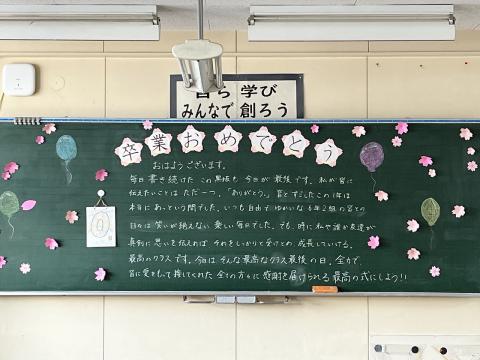 自ら 学び
みんなで 創ろう
卒業おめでとう
おはようございます。
毎日書き続けた この黒板も 今日が 最後です。私が皆に
伝えたいことは ただ一つ。「ありがとう。」皆とすごしたこの1年は
本当に あっという間でした。いつも自由で ゆかいな 6年2組の皆との
日々は 笑いが絶えない 楽しい 毎日でした。でも、時に 私や 誰か 友達が
真剣に 思いを 伝えれば それを しっかりと 受けとめ 成長していける。
最高のクラスです。今日は そんな 最高な クラス 最後 の 日。全力で、
皆に 愛をもって 接してくれた 全ての方々に 感謝を 届けられる 最高の 式にしよう!!